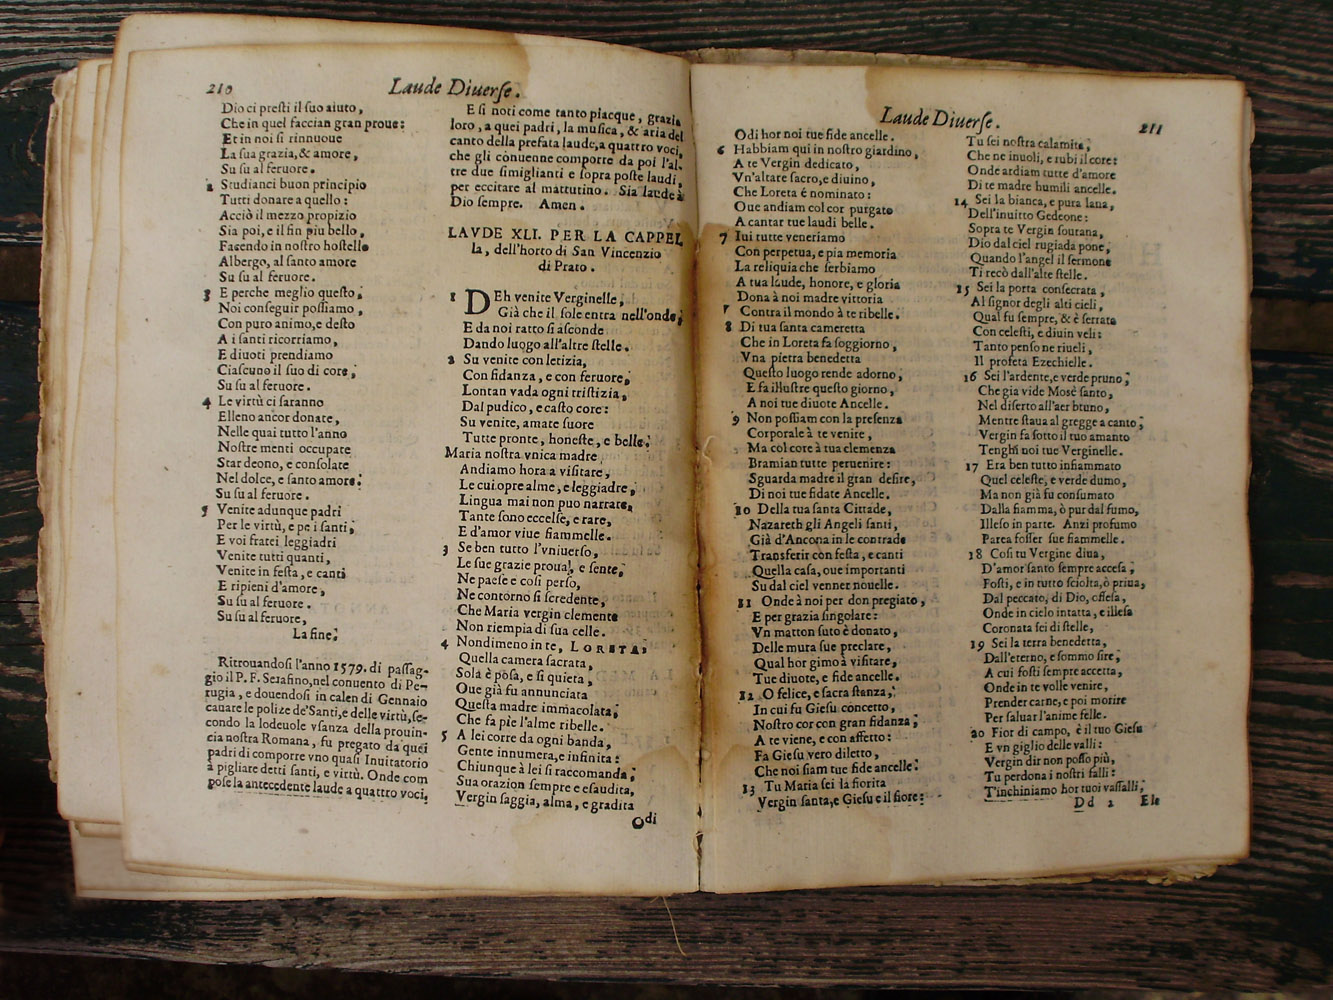 210
Laude Diuerse.
Dio ci presti il suo aiuto,
Che in quel faccian gran proue:
Et in noi si rinnuoue
La sua grazia, & amore,
Su su al feruore.
2 Studianci buon principio
Tutti donare a quello:
Acciò il mezzo propizio
Sia poi, e il fin piu bello,
Facendo in nostro hostello
Albergo, al santo amore
Su su al feruore.
3 E perche meglio questo,
Noi conseguir possiamo,
Con puro animo, e desto
A i santi ricorriamo,
E diuoti prendiamo
Ciascuno il suo di core,
Su su al feruore.
4 Le virtù ci saranno
Elleno ancor donate,
Nelle quai tutto l'anno
Nostre menti occupate
Star deono, e consolate
Nel dolce, e santo amore:
Su su al feruore.
5 Venite adunque padri
Per le virtù, e pe i santi,
E voi fratei leggiadri
Venite tutti quanti,
Venite in festa, e canti
E ripieni d'amore,
Su su al feruore.
Su su al feruore,
La fine;
Ritrouandosi l'anno 1579. di passag-
gio il P. F. Serafino, nel conuento di Pe-
rugia, e douendosi in calen di Gennaio
cauare le polize de' Santi, e delle virtù, se-
condo la lodeuole vsanza della prouin-
cia nostra Romana, fu pregato da quei
padri di comporre vno quasi Inuitatorio
a pigliare detti santi, e virtù. Onde com
pose la antecedente laude a quattro voci,
E si noti come tanto piacque, grazia
loro, a quei padri, la musica, & aria del
canto della prefata laude, a quattro voci,
che gli conuenne comporre da poi l'al-
tre due simiglianti e sopra poste laudi,
per eccitare al mattutino. Sia laude à
Dio sempre. Amen.
LAVDE XLI. PER LA CAPPEL
la, dell'horto di San Vincenzio
di Prato.
1 DEh venite Verginelle,
Già che il sole entra nell'onde,
E da noi ratto si asconde
Dando luogo all'altre stelle.
2 Su venite con letizia,
Con fidanza, e con feruore,
Lontan vada ogni tristizia,
Dal pudico, e casto core:
Su venite, amate suore
Tutte pronte, honeste, e belle.
Maria nostra vnica madre
Andiamo hora a visitare,
Le cui opre alme, e leggiadre,
Lingua mai non puo narrare,
Tante sono eccelse, e rare,
E d'amor viue fiammelle.
3 Se ben tutto l'vniuerso,
Le sue grazie proua, e sente,
Ne paese e cosi perso,
Ne contorno si scredente,
Che Maria vergin clemente
Non riempia di sua celle.
4 Nondimeno in te, LORETA,
Quella camera sacrata,
Sola è posa, e si quieta,
Oue già fu annunciata
Questa madre immacolata,
Che fa pie l'alme ribelle.
5 A lei corre da ogni banda,
Gente innumera, e infinita:
Chiunque à lei si raccomanda,
Sua orazion sempre e esaudita,
Vergin saggia, alma, e gradita
Odi
Laude Diuerse.
211
Odi hor noi tue fide ancelle.
6 Habbiam qui in nostro giardino,
A te Vergin dedicato,
Vn'altare sacro, e diuino,
Che Loreta é nominato:
Oue andiam col cor purgato
A cantar tue laudi belle.
7 Iui tutte veneriamo
Con perpetua, e pia memoria
La reliquia che serbiamo
A tua laude, honore, e gloria
Dona à noi madre vittoria
Contra il mondo à te ribelle.
8 Di tua santa cameretta
Che in Loreta fa soggiorno,
Vna pietra benedetta
Questo luogo rende adorno,
E fa illustre questo giorno,
A noi tue diuote Ancelle.
9 Non possiam con la presenza
Corporale à te venire,
Ma col core à tua clemenza
Bramian tutte peruenire:
Sguarda madre il gran desire,
Di noi tue fidate Ancelle.
10 Della tua santa Cittade,
Nazareth gli Angeli santi,
Già d'Ancona in le contrade
Transferir con festa, e canti
Quella casa, oue importanti
Su dal ciel venner nouelle.
11 Onde à noi per don pregiato,
E per grazia singolare:
Vn matton suto è donato,
Delle mura sue preclare,
Qual hor gimo à visitare,
Tue diuote, e fide ancelle.
12 O felice, e sacra stanza,
In cui fu Giesu concetto,
Nostro cor con gran fidanza,
A te viene, e con affetto:
Fa Giesu vero diletto,
Che noi siam tue fide ancelle:
13 Tu Maria sei la fiorita
Vergin santa, e Giesu e il fiore:
Tu sei nostra calamita,
Che ne inuoli, e rubi il core:
Onde ardiam tutte d'amore
Di te madre humili ancelle.
14 Sei la bianca, e pura lana,
Dell'inuitto Gedeone:
Sopra te Vergin sourana,
Dio dal ciel rugiada pone,
Quando l'angel il sermone
Ti recò dall'alte stelle.
15 Sei la porta consecrata,
Al signor degli alti cieli,
Qual fu sempre, & è serrata
Con celesti, e diuin veli:
Tanto penso ne riueli,
Il profeta Ezechielle.
16 Sei l'ardente, e verde pruno,
Che gia vide Mosè santo,
Nel diserto all'aer bruno,
Mentre staua al gregge a canto;
Vergin fa sotto il tuo amanto
Tenghi noi tue Verginelle.
17 Era ben tutto infiammato
Quel celeste, e verde dumo,
Ma non già fu consumato
Dalla fiamma, ò pur dal fumo,
Illeso in parte. Anzi profumo
Parea fosser sue fiammelle.
18 Cosi tu Vergine diua,
D'amor santo sempre accesa,
Fosti, e in tutto sciolta, ò priua,
Dal peccato, di Dio, offesa,
Onde in cielo intatta, e illesa
Coronata sei di stelle,
19 Sei la terra benedetta,
Dall'eterno, e sommo sire,
A cui fosti sempre accetta,
Onde in te volle venire,
Prender carne, e poi morire
Per saluar l'anime felle.
20 Fior di campo, è il tuo Giesu
E vn giglio delle valli:
Vergin dir non posso più,
Tu perdona i nostri falli:
T'inchiniamo hor tuoi vassalli,
Dd 2 Ele